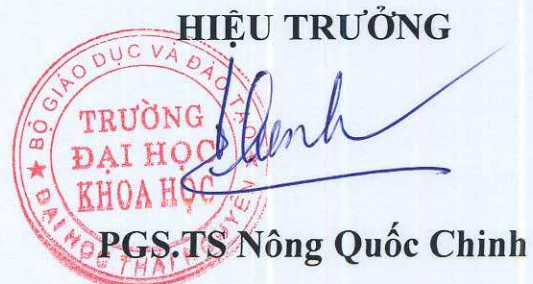 HIỆU TRƯỞNG
★ BỘ GIÁO DỤC VÀ ĐÀO
TRƯỜNG
ĐẠI HỌC
KHOA HỌC
ĐẠI HỌC THÁI NGUYÊN ★
PGS.TS Nông Quốc Chinh